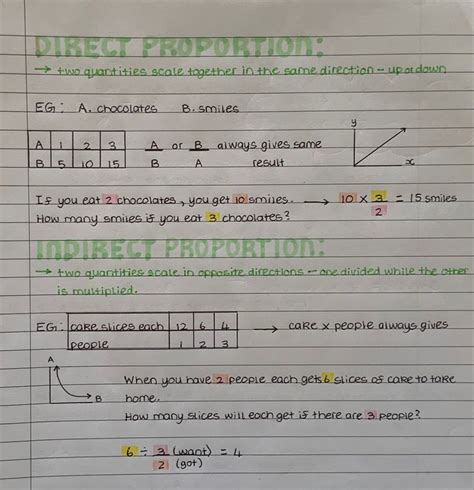 DIRECT PROPORTION:
→ two quantities scale together in the same direction – up or down
EG: A. chocolates B. smiles
A 1 2 3
B 5 10 15
A/B or B/A always gives same result
y
x
If you eat 2 chocolates, you get 10 smiles. → 10 × 3/2 = 15 smiles
How many smiles if you eat 3 chocolates?
INDIRECT PROPORTION:
→ two quantities scale in opposite directions – one divided while the other
is multiplied.
EG: cake slices each 12 6 4 → cake × people always gives
people 1 2 3
A
B
When you have 2 people each gets 6 slices of cake to take
home.
How many slices will each get if there are 3 people?
6 ÷ 3 (want) = 4
2 (got)